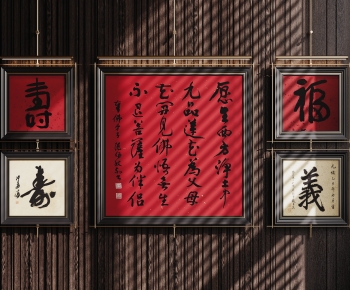 壽
壽
愿生西方淨土中
九品蓮花為父母
花開見佛悟無生
不退菩薩為伴侶
福
義